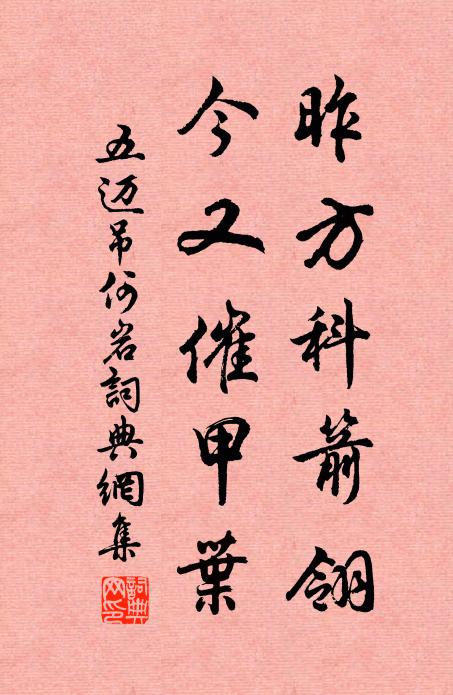 昨方科箭翎
今又催甲葉
五迈吊何岩詞典網集
詞典網印